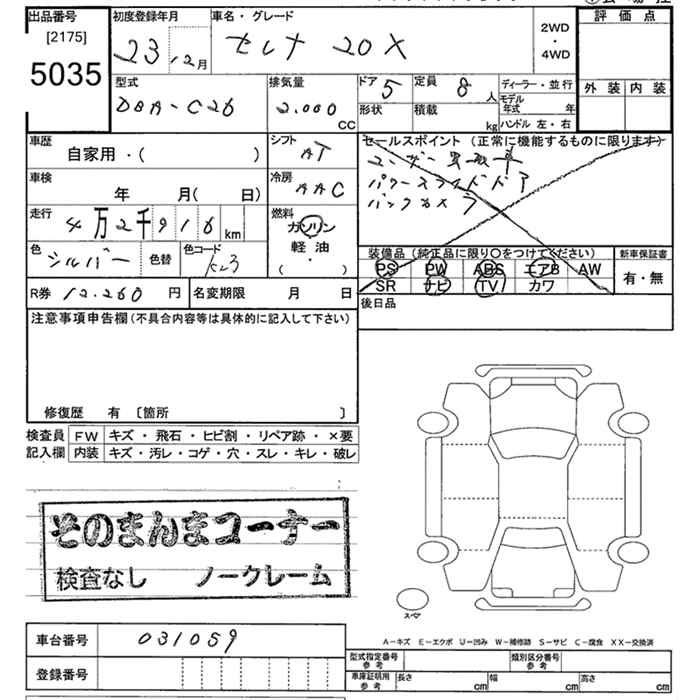 出品番号
[2175]
5035
初度登録年月
23 12月
車名・グレード
セレナ 20X
2WD
・
4WD
評価点
外装 内装
型式
DBA-C26
排気量
2.000
CC
ドア 5
定員 8 人
形状
積載
kg
ディーラー・並行
モデル年式 年
ハンドル 左・右
車歴
自家用・( )
シフト
AT
車検
年 月( 日)
冷房
AAC
走行
4万2千916 km
燃料
ガソリン
軽油
・
( )
色
シルバー
色替
色コード
K23
R券 12.260 円
名変期限 月 日
セールスポイント (正常に機能するものに限ります)
ユーザー買取車
パワースライドドア
バックカメラ
装備品 (純正品に限り○をつけてください)
PS PW ABS エアB AW
SR ナビ TV カワ
新車保証書
有・無
後日品
注意事項申告欄 (不具合内容等は具体的に記入して下さい)
修復歴 有 〔箇所 〕
検査員 FW キズ・飛石・ヒビ割・リペア跡・×要
記入欄 内装 キズ・汚レ・コゲ・穴・スレ・キレ・破レ
そのまんまコーナー
検査なし ノークレーム
スペア
A-キズ E-エクボ U-凹み W-補修跡 S-サビ C-腐食 XX-交換済
車台番号 031059
登録番号
型式指定番号
参考
類別区分番号
参考
車庫証明用
参考
長さ cm 幅 cm 高さ cm